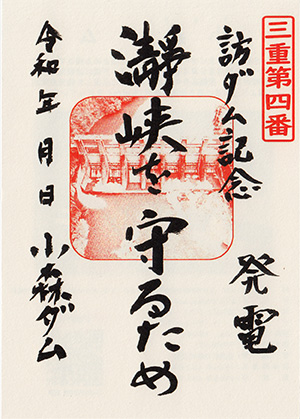 三重第四番
訪ダム記念
発電
瀞峡を守るため
令和年月日
小森ダム